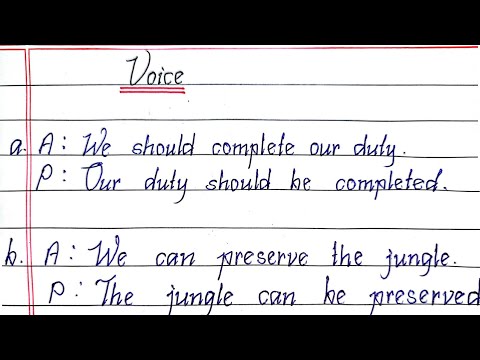 Voice
a. A: We should complete our duty.
P: Our duty should be completed.
b. A: We can preserve the jungle.
P: The jungle can be preserved